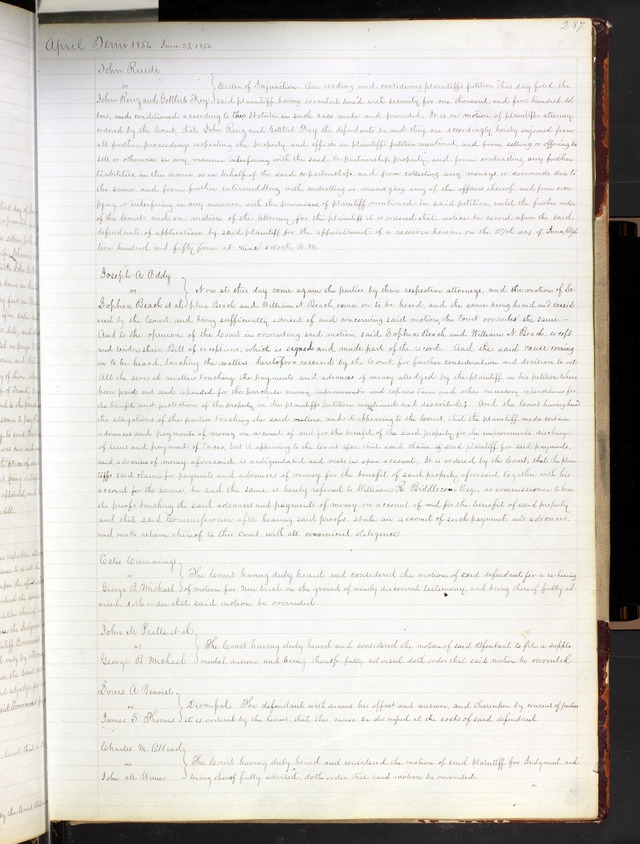 287
April Term 1854. June 23, 1854
John Ruedi
vs
John Renz and Gottlieb Frey
Order of Injunction. On reading and considering plaintiffs petition this day filed, the
said plaintiff having executed bond with security for one thousand and five hundred dol
lars, and conditioned according to the Statute in such case made and provided. It is on motion of plaintiffs attorney,
ordered by the Court, that John Renz and Gottlieb Frey the defendants be and they are accordingly hereby enjoined from
all further proceedings respecting the property and effects in plaintiffs petition mentioned, and from selling or offering to
sell or otherwise in any manner interfering with the said Co partnership property, and from contracting any further
liabilities, in the name or on behalf of the said copartnership, and from collecting any moneys or demands due to
the same, and from further intermeddling with, controlling or managing any of the affairs thereof and from occu-
pying or interfering in any manner, with the premises of plaintiff mentioned in said petition, until the further order
of this Court. and on motion of the Attorney for the plaintiff it is ordered that notice be served upon the said
defendants of application by said plaintiff for the appointment of a receiver herein on the 27th day of June, Eigh
teen hundred and fifty four at nine oclock, A. M.
Joseph A Eddy
vs
Sophia Beach et al
Now at this day come again the parties by their respective attorneys, and the motion of So-
phia Beach and William N. Beach, come on to be heard, and the same being heard and consid
ered by the Court, and being sufficiently advised of and concerning said motion, the Court overrules the same.-
And to the opinion of the Court in overruling said motion, said Sophia Beach and William N. Beach, except
and tender their Bill of exceptions, which is signed and made part of the record. And the said cause coming
on to be heard, touching the matters heretofore reserved by the Court, for further consideration and decision to wit
All the several matters touching the payments and advances of money alledged by the plaintiff, in his petition to have
been paid out and expended for the purchase money, improvements and repairs taxes and other necessary expenditures for
the benefit and protection of the property in the plaintiffs petition mentioned and described; And the Court having heard
the allegations of the parties touching the said matters, and it appearing to the Court, that the plaintiff made certain
advances and payments of money on account of and for the benefit of the said property for the improvements, discharge
of liens and payment of taxes, but it appearing to the Court also that said claim of said plaintiff for said payments,
and advances of money aforesaid, is unliquidated and rests in open account, It is ordered by the Court, that the plain-
tiffs said claims for payments and advances of money for the benefit of said property aforesaid together with his
account for the same, be and the same is hereby referred to William R. Biddlecom Esq, as commissioner to hear
the proofs touching the said advances and payments of money on account of and for the benefit of said property
and that said Commissioner after hearing said proofs, state an account of such payments and advances,
and make return thereof to this Court, with all convenient diligence.
Estes Cummings
vs
George B. Michael
The Court having duly heard and considered the motion of said defendants for a re-hearing
of motion for new trial on the ground of newly discovered testimony and being thereof fully ad-
vised, doth order that said motion be overruled.
John M Pratte et al
vs
George B Michael
The Court having duly heard and considered the motion of said defendant to file a supple-
mental answer, and being thereof fully advised doth order that said motion be overruled
Louis A Benoist
vs
James S Thomas
Dismissal. The defendant with draws his offset and answer, and thereupon by consent of parties
it is ordered by the Court, that this cause be dismissed at the costs of said defendant
Charles M. Ellard
vs
John M. Wimer
The Court having duly heard and considered the motion of said Plaintiff for Judgment, and
being thereof fully advised, doth order that said motion be overruled.